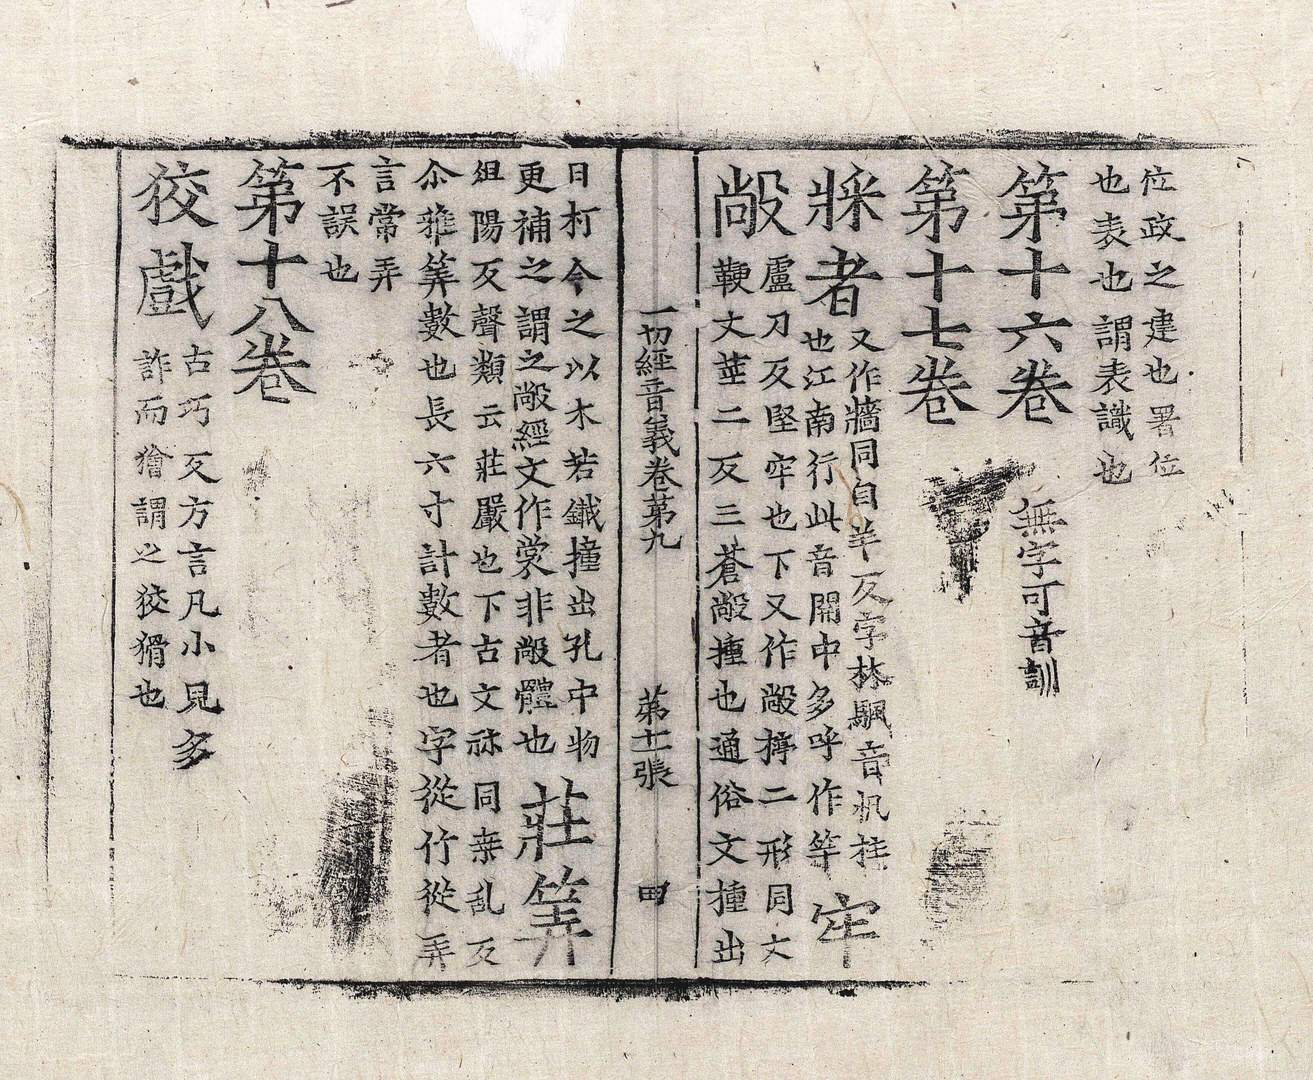 位政之建也署位
也表也謂表識也
第十六卷 無字可音訓
第十七卷
者 又作牆同自羊反字林颿音帆柱
也江南行此音關中多呼作竿 牢
敞 盧刀反堅牢也下又作敞揨二形同丈
鞕丈莖二反三蒼敞撞也通俗文撞出
一切經音義卷第九 第十一張 田
曰朾今之以木若鐵撞出孔中物
更補之謂之敞經文作棠非敞體也 莊筭
俎陽反聲類云莊嚴也下古文祘同桒乱反
尒雅筭數也長六寸計數者也字從竹從弄
言常弄
不誤也
第十八卷
狡戲 古巧反方言凡小兒多
詐而獪謂之狡猾也